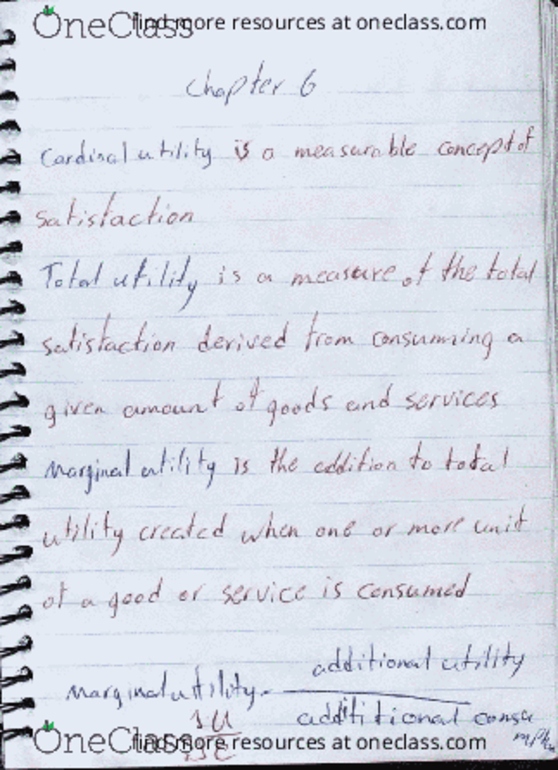 OneClass find more resources at oneclass.com
Chapter 6
Cardinal utility is a measurable concept of
satisfaction
Total utility is a measure of the total
satisfaction derived from consumming a
given amount of goods and services
Marginal utility is the addition to total
utility created when one or more unit
of a good or service is consumed
additional utility
Marginal utility =
addititional consu
OneClass find more resources at oneclass.com